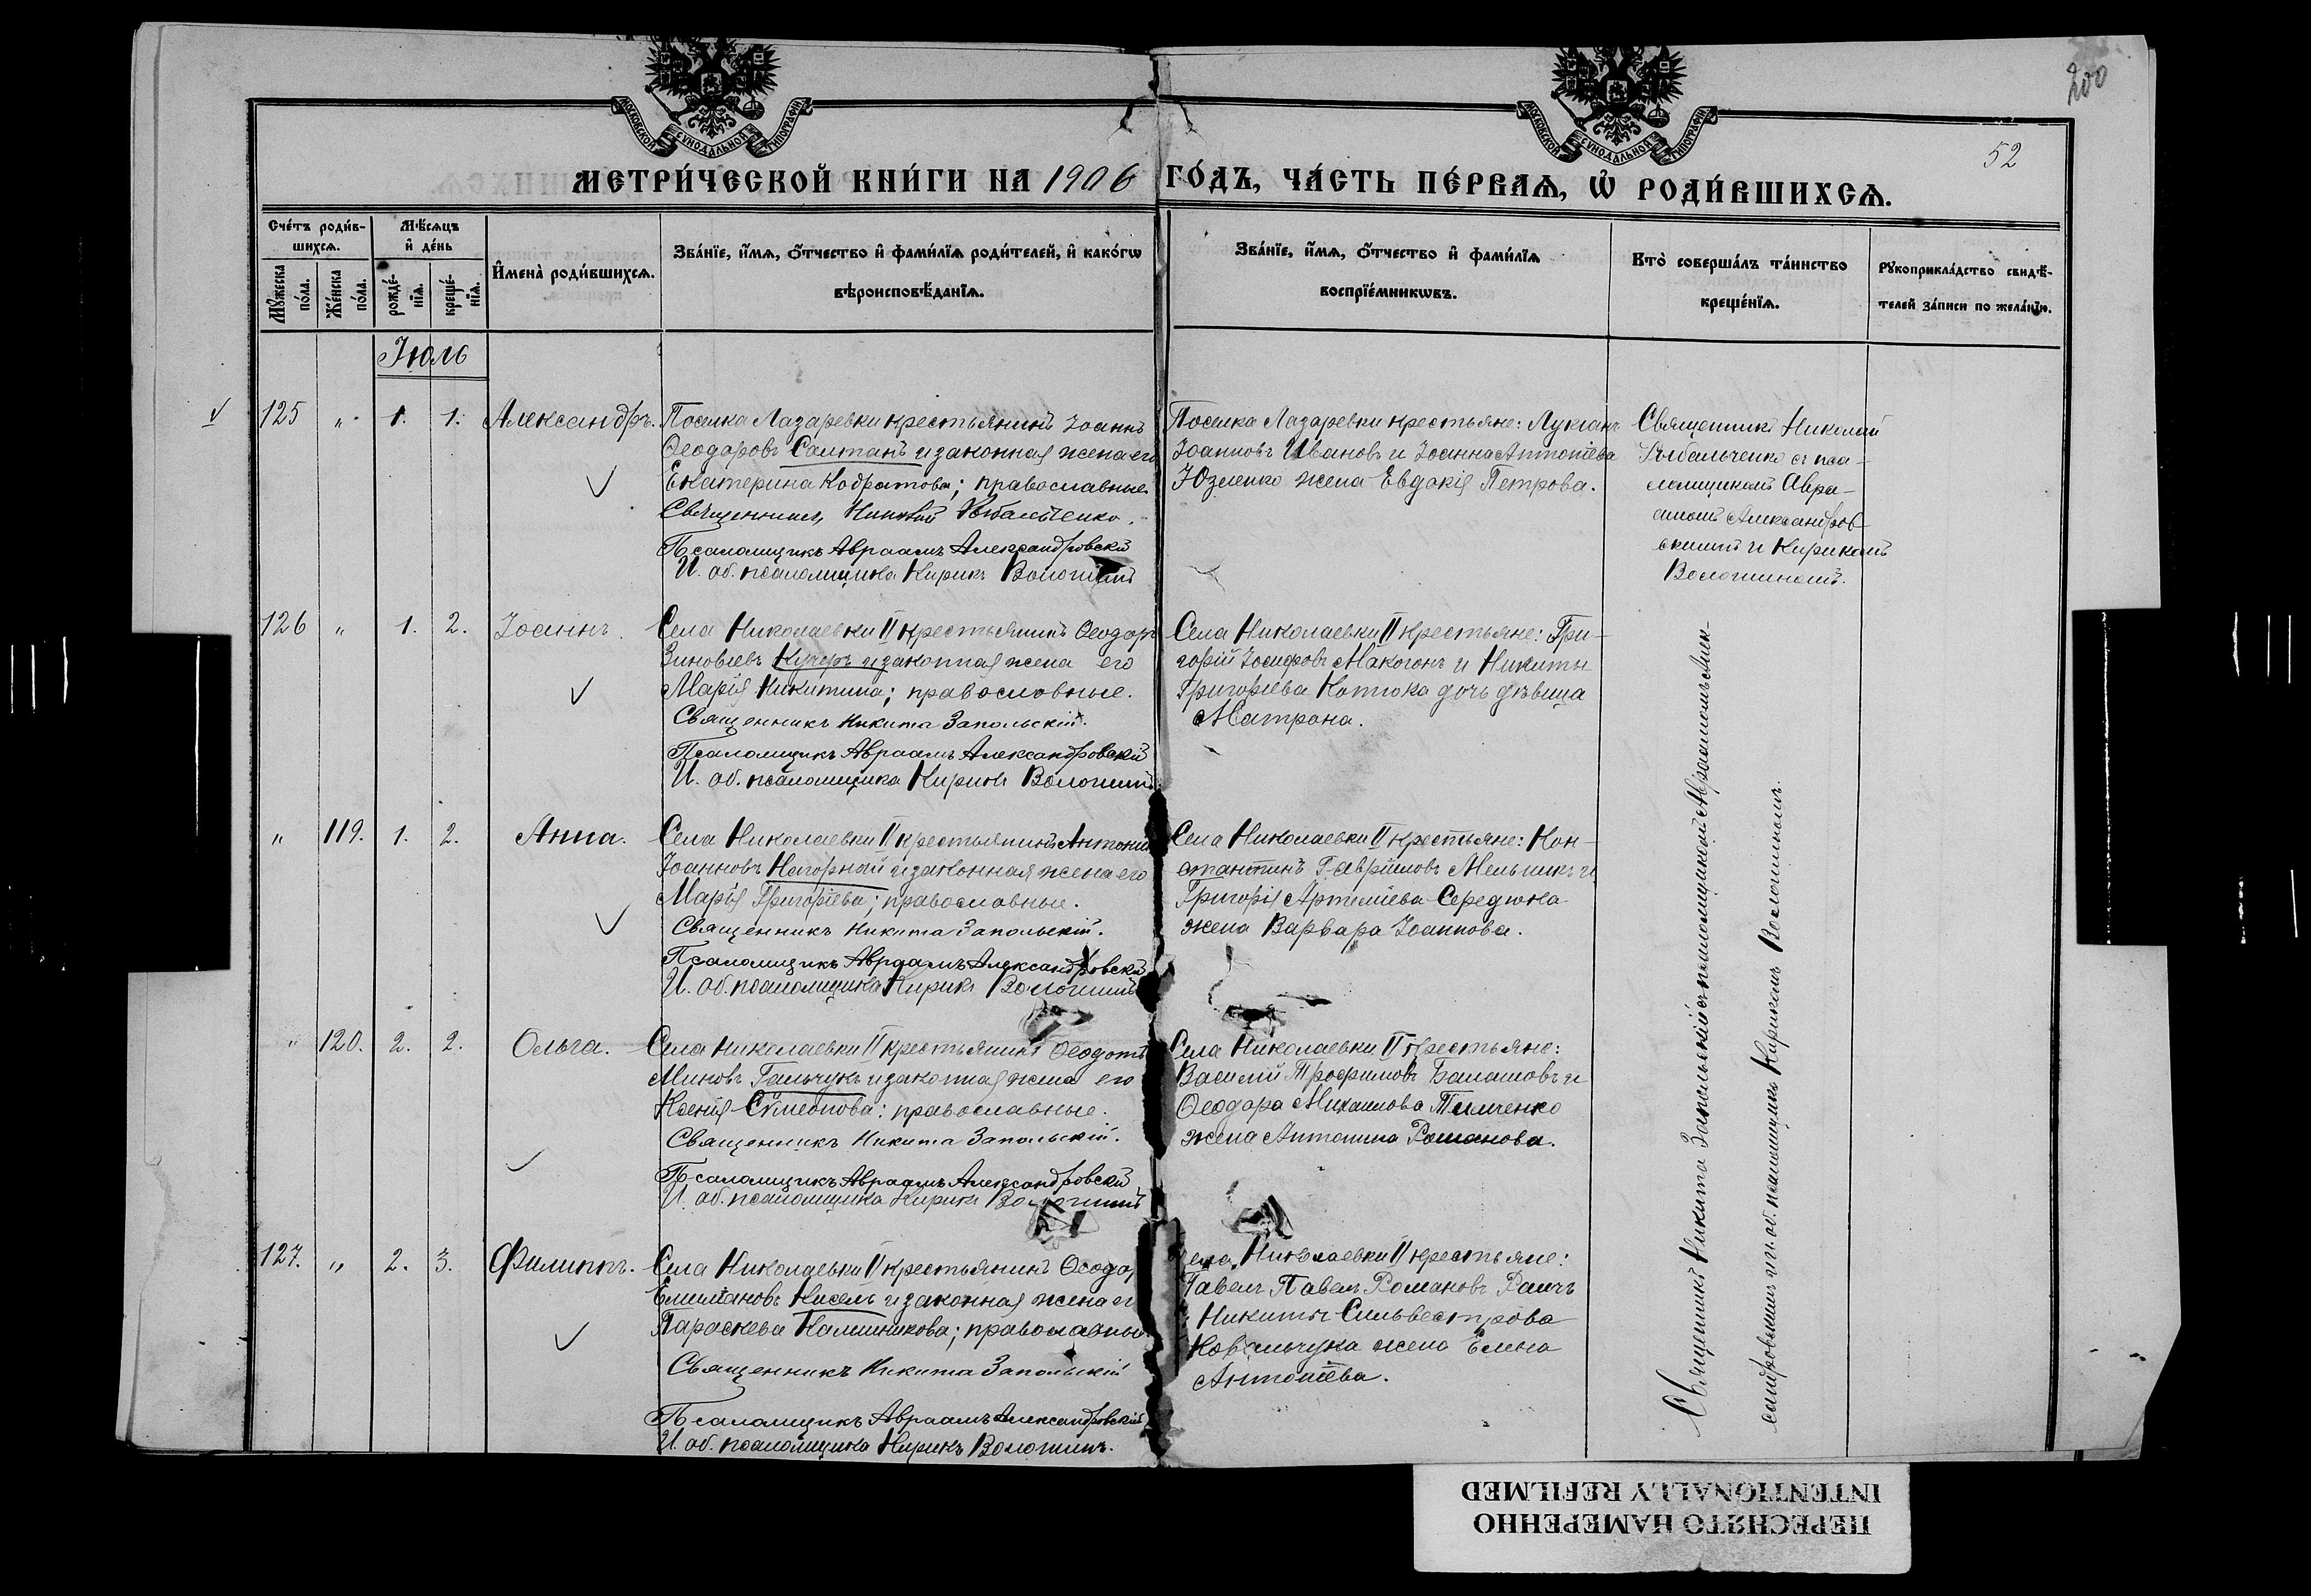 200
52
МОСКОВСКОЙ СѴНОДАЛЬНОЙ ТИПОГРАФІИ
МОСКОВСКОЙ СѴНОДАЛЬНОЙ ТИПОГРАФІИ
МЕТРИ́ЧЕСКОЙ КНИ́ГИ НА 1906 ГО́ДЪ, ЧА́СТЬ ПЕ́РВАѦ, Ѡ҆ РОДИ́ВШИХСѦ.
Сче́тъ роди́в-
шихсѧ.
Мѣ́сѧцъ
и҆ де́нь
Мꙋ́жеска
по́ла.
Же́нска
по́ла.
рожде́-
нїѧ.
креще́-
нїѧ.
И҆мена̀ роди́вшихсѧ.
Зва́нїе, и҆́мѧ, ѻ҆́тчество и҆ фами́лїѧ роди́телей, и҆ како́гѡ
вѣроисповѣ́данїѧ.
Зва́нїе, и҆́мѧ, ѻ҆́тчество и҆ фами́лїѧ
воспрїе́мникѡвъ.
Кто̀ соверша́лъ та́инство
креще́нїѧ.
Рꙋкоприкла́дство свидѣ́-
телей за́писи по жела́нїю.
Іюль
125 " 1. 1. Александръ.
Поселка Лазаревки крестьянинъ Іоаннъ
Ѳеодоровъ Салтанъ и законная жена его
Екатерина Кодратова; православные.
Священникъ Николай Рыбальченко.
Псаломщикъ Авраамъ Александровскій
И. об. псаломщика Кирикъ Волошинъ
Поселка Лазаревки крестьяне: Лукіанъ
Іоанновъ Ивановъ и Іоанна Антоніева
Юзленко жена Евдокія Петрова.
Священникъ Николай
Рыбальченко съ пса-
ломщикомъ Авра-
амомъ Александров-
скимъ и Кирикомъ
Волошиномъ.
126 " 1. 2. Іоаннъ.
Села Николаевки II крестьянинъ Ѳеодоръ
Зиновіевъ Кучеръ и законная жена его
Марія Никитина; православные.
Священникъ Никита Запольскій.
Псаломщикъ Авраамъ Александровскій
И. об. псаломщика Кирикъ Волошинъ
Села Николаевки II крестьяне: Гри-
горій Іосифовъ Макогонъ и Никиты
Григоріева Котюка дочь дѣвица
Матрона.
" 119. 1. 2. Анна.
Села Николаевки II крестьянинъ Антоній
Іоанновъ Нагорный и законная жена его
Марія Григоріева; православные.
Священникъ Никита Запольскій.
Псаломщикъ Авраамъ Александровскій
И. об. псаломщика Кирикъ Волошинъ
Села Николаевки II крестьяне: Кон-
стантинъ Гавріиловъ Мельникъ и
Григорія Артеміева Середюка
жена Варвара Іоаннова.
" 120. 2. 2. Ольга.
Села Николаевки II крестьянинъ Ѳеодотъ
Миновъ Гальчукъ и законная жена его
Ксенія Сѵмеонова; православные.
Священникъ Никита Запольскій.
Псаломщикъ Авраамъ Александровскій
И. об. псаломщика Кирикъ Волошинъ
Села Николаевки II крестьяне:
Василій Трофимовъ Балашовъ и
Ѳеодора Михаилова Тимченко
жена Антонина Романова.
127. " 2. 3. Филиппъ.
Села Николаевки II крестьянинъ Ѳеодор
Емиліановъ Кисель и законная жена ег
Параскева Каллиникова; православные
Священникъ Никита Запольскій
Псаломщикъ Авраамъ Александровскій
И. об. псаломщика Кирикъ Волошинъ.
Села Николаевки II крестьяне:
Павелъ Романовъ
Никиты Сильвестрова
Ковальчука жена Елена
Антоніева.
Священникъ Никита Запольскій съ псаломщикомъ Авраамомъ Алек-
сандровскимъ и и. об. псаломщика Кирикомъ Волошиномъ.
ПЕРЕСНЯТО НАМЕРЕННО
INTENTIONALLY REFILMED